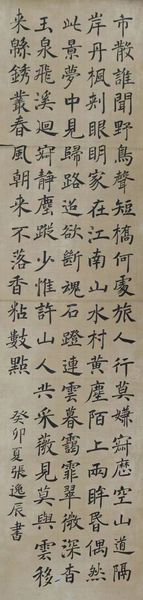 市散誰聞野鳥聲短橋何處旅人行莫嫌寂歷空山道隔
岸丹楓刺眼明家在江南山水村黃塵陌上兩眸昏偶然
此景夢中見歸路迢迢欲斷魂石磴連雲暮靄霏翠微深杳
玉泉飛溪迴寂靜塵蹤少惟許山人共采薇見莫與雲移
來緜銹叢春風朝來不落香粘數點
癸卯夏張逸辰書